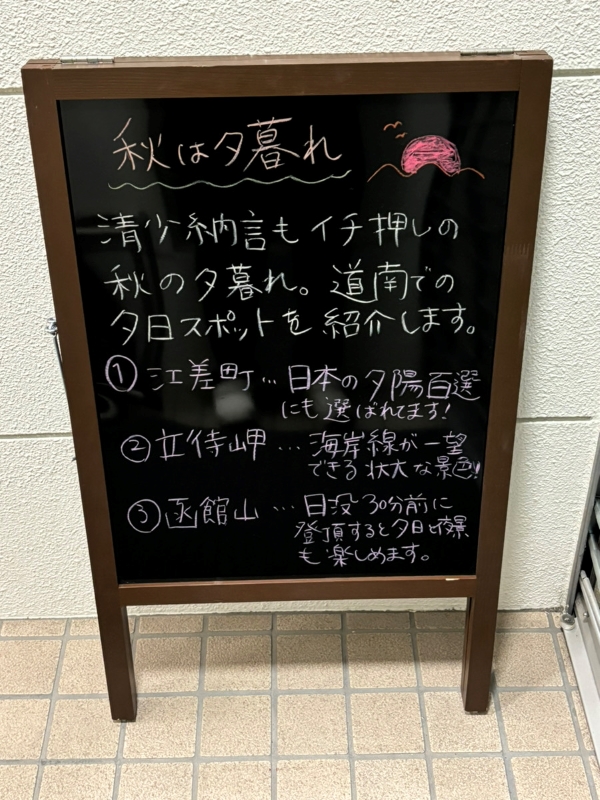 秋は夕暮れ
清少納言もイチ押しの
秋の夕暮れ。道南での
夕日スポットを紹介します。
① 江差町…日本の夕陽百選
にも選ばれてます!
② 立待岬…海岸線が一望
できる壮大な景色!
③ 函館山…日没30分前に
登頂すると夕日と夜景
も楽しめます。